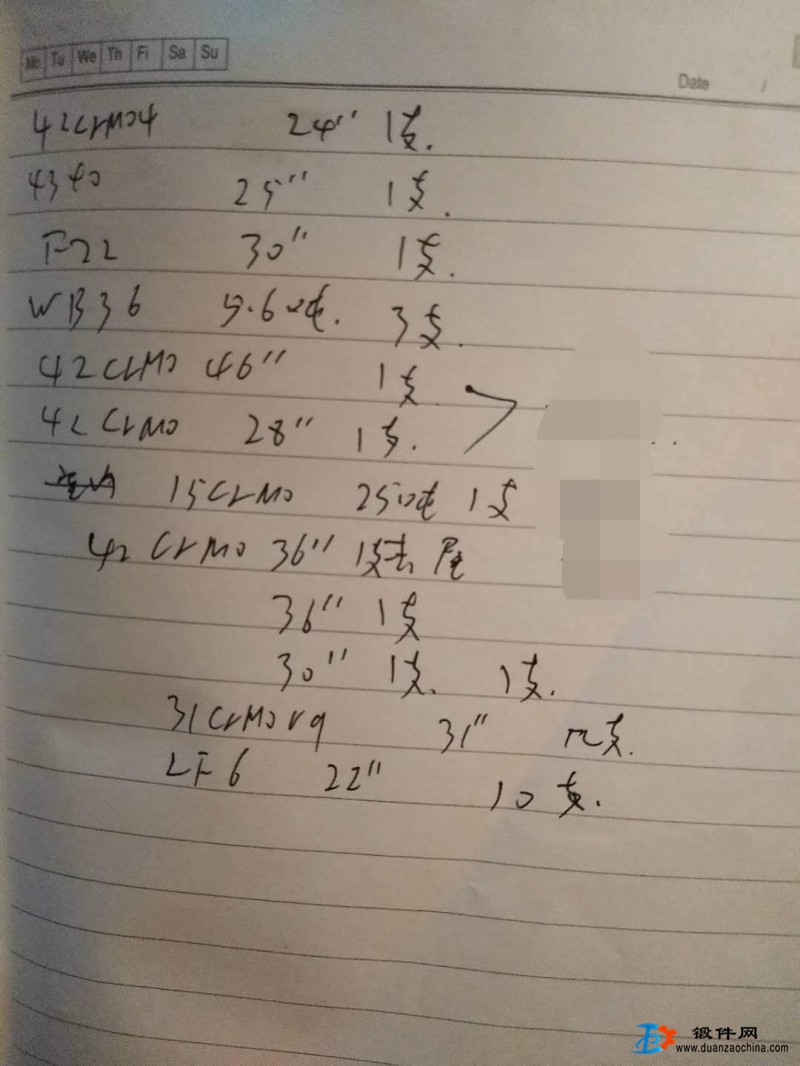 Mo Tu We Th Fr Sa Su
Date /
42CrMo4 24" 1支.
4340 25" 1支.
F22 30" 1支.
WB36 9.60吨. 3支.
42CrMo 46" 1支.
42CrMo 28" 1支.
15CrMo 250吨 1支
42CrMo 36" 1支去尾
36" 1支
30" 1支. 1支.
31CrMoV9 31" 支.
LF6 22" 10支.
锻件网
www.duanzaochina.com